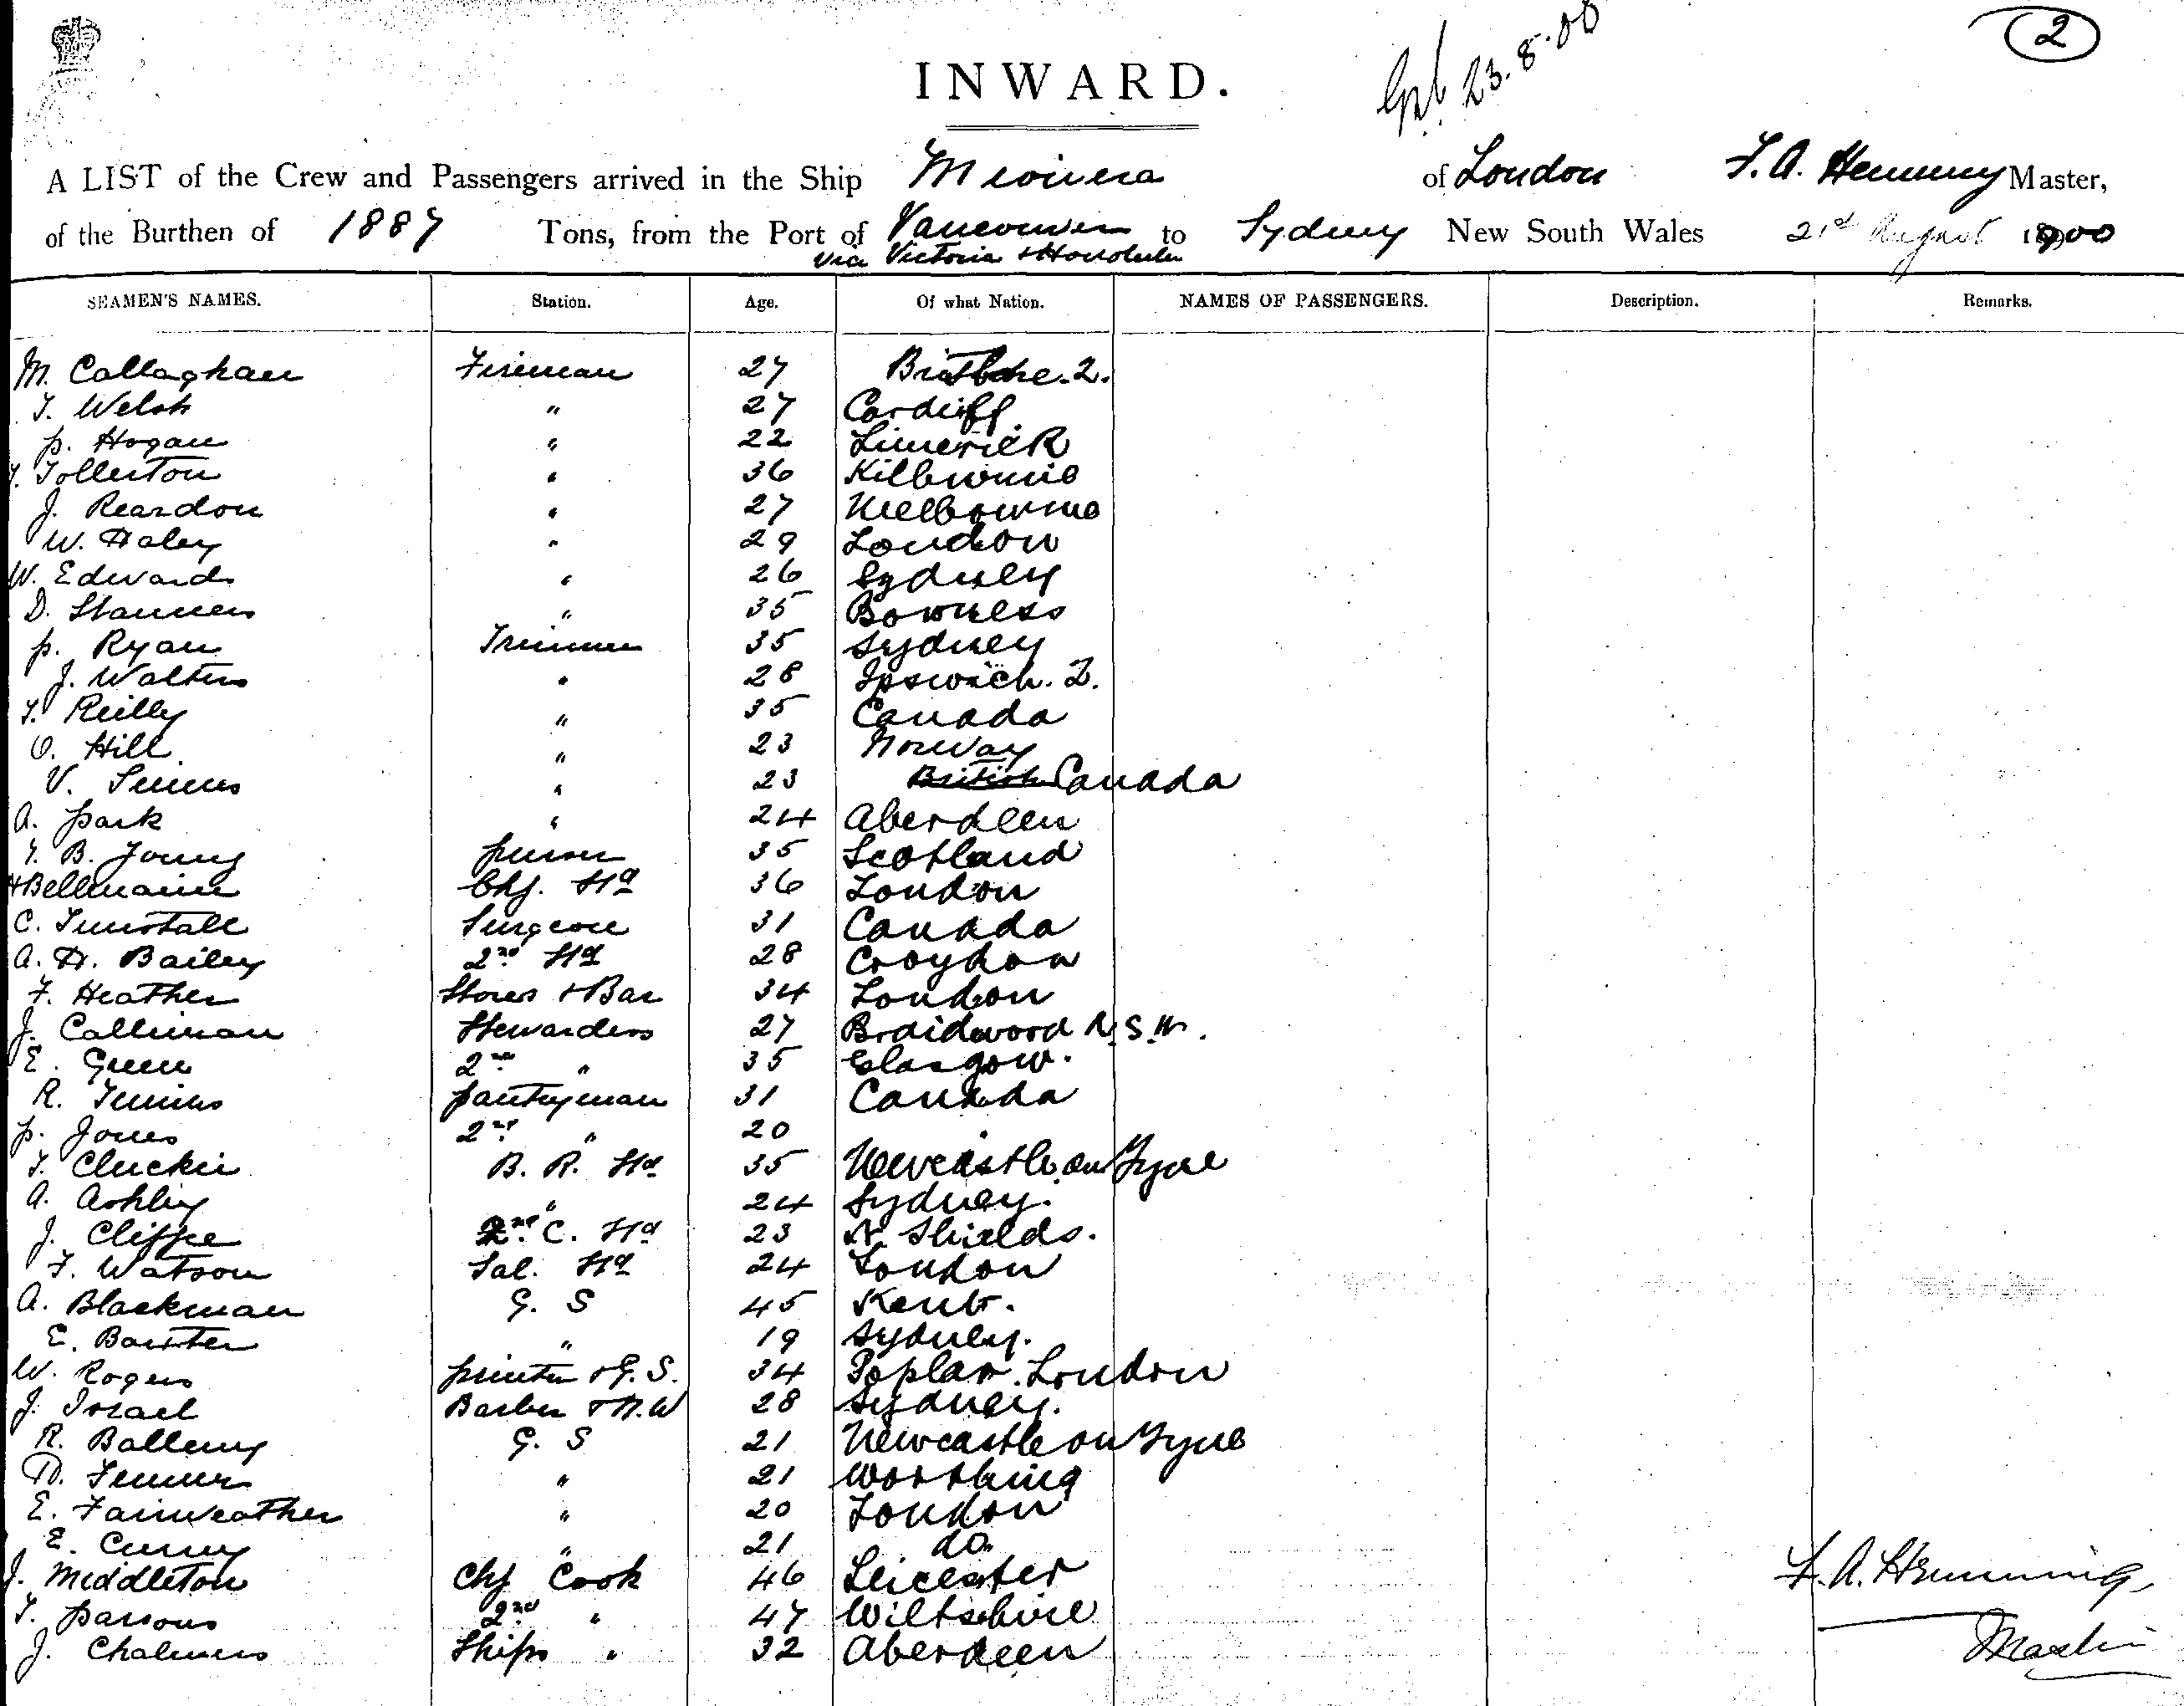 2
23.8.00
INWARD.
A LIST of the Crew and Passengers arrived in the Ship Miowera of London F. A. Hemming Master,
of the Burthen of 1887 Tons, from the Port of Vancouver to Sydney New South Wales 21st August 1900
via Victoria & Honolulu
SEAMEN'S NAMES. Station. Age. Of what Nation. NAMES OF PASSENGERS. Description. Remarks.
M. Callaghan Fireman 27 Brisbane. 2.
T. Welsh " 27 Cardiff
P. Hogan " 22 Limerick
T. Tollerton " 36 Kilbirnie
J. Reardon " 27 Melbourne
W. Haley " 29 London
W. Edwards " 26 Sydney
D. " 35 Bowness
P. Ryan Trimmer 35 Sydney
J. Walters " 28 Ipswich. 2.
T. Reilly " 35 Canada
O. Hill " 23 Norway
V. " 23 British Canada
A. Park " 24 Aberdeen
T. B. Young Purser 35 Scotland
H Bellmaine Chf. Std 36 London
C. Tunstall Surgeon 31 Canada
A. H. Bailey 2nd Std 28 Croydon
F. Heather Stores & Bar 34 London
J. Callinan Stewardess 27 Braidwood N.S.W.
E. Green 2nd " 35 Glasgow.
R. Pantryman 31 Canada
P. Jones 2nd " 20 "
T. Cluckie B. R. Std 35 Newcastle on Tyne
A. Ashley " 24 Sydney.
J. Cliffe 2nd C. Std 23 N. Shields.
F. Watson Sal. Std 24 London
A. Blackman G. S 45 Kent.
E. Baxter " 19 Sydney.
W. Rogers Printer & G. S. 34 Poplar. London
J. Israel Barber & N. W 28 Sydney.
R. Ballemy G. S 21 Newcastle on Tyne
D. Fenner " 21 Worthing
E. Fairweather " 20 London
E. " 21 do.
J. Middleton Chf Cook 46 Leicester
T. Parsons 2nd " 47 Wiltshire
J. Chalmers Ships " 32 Aberdeen
F. A. Hemming
Master